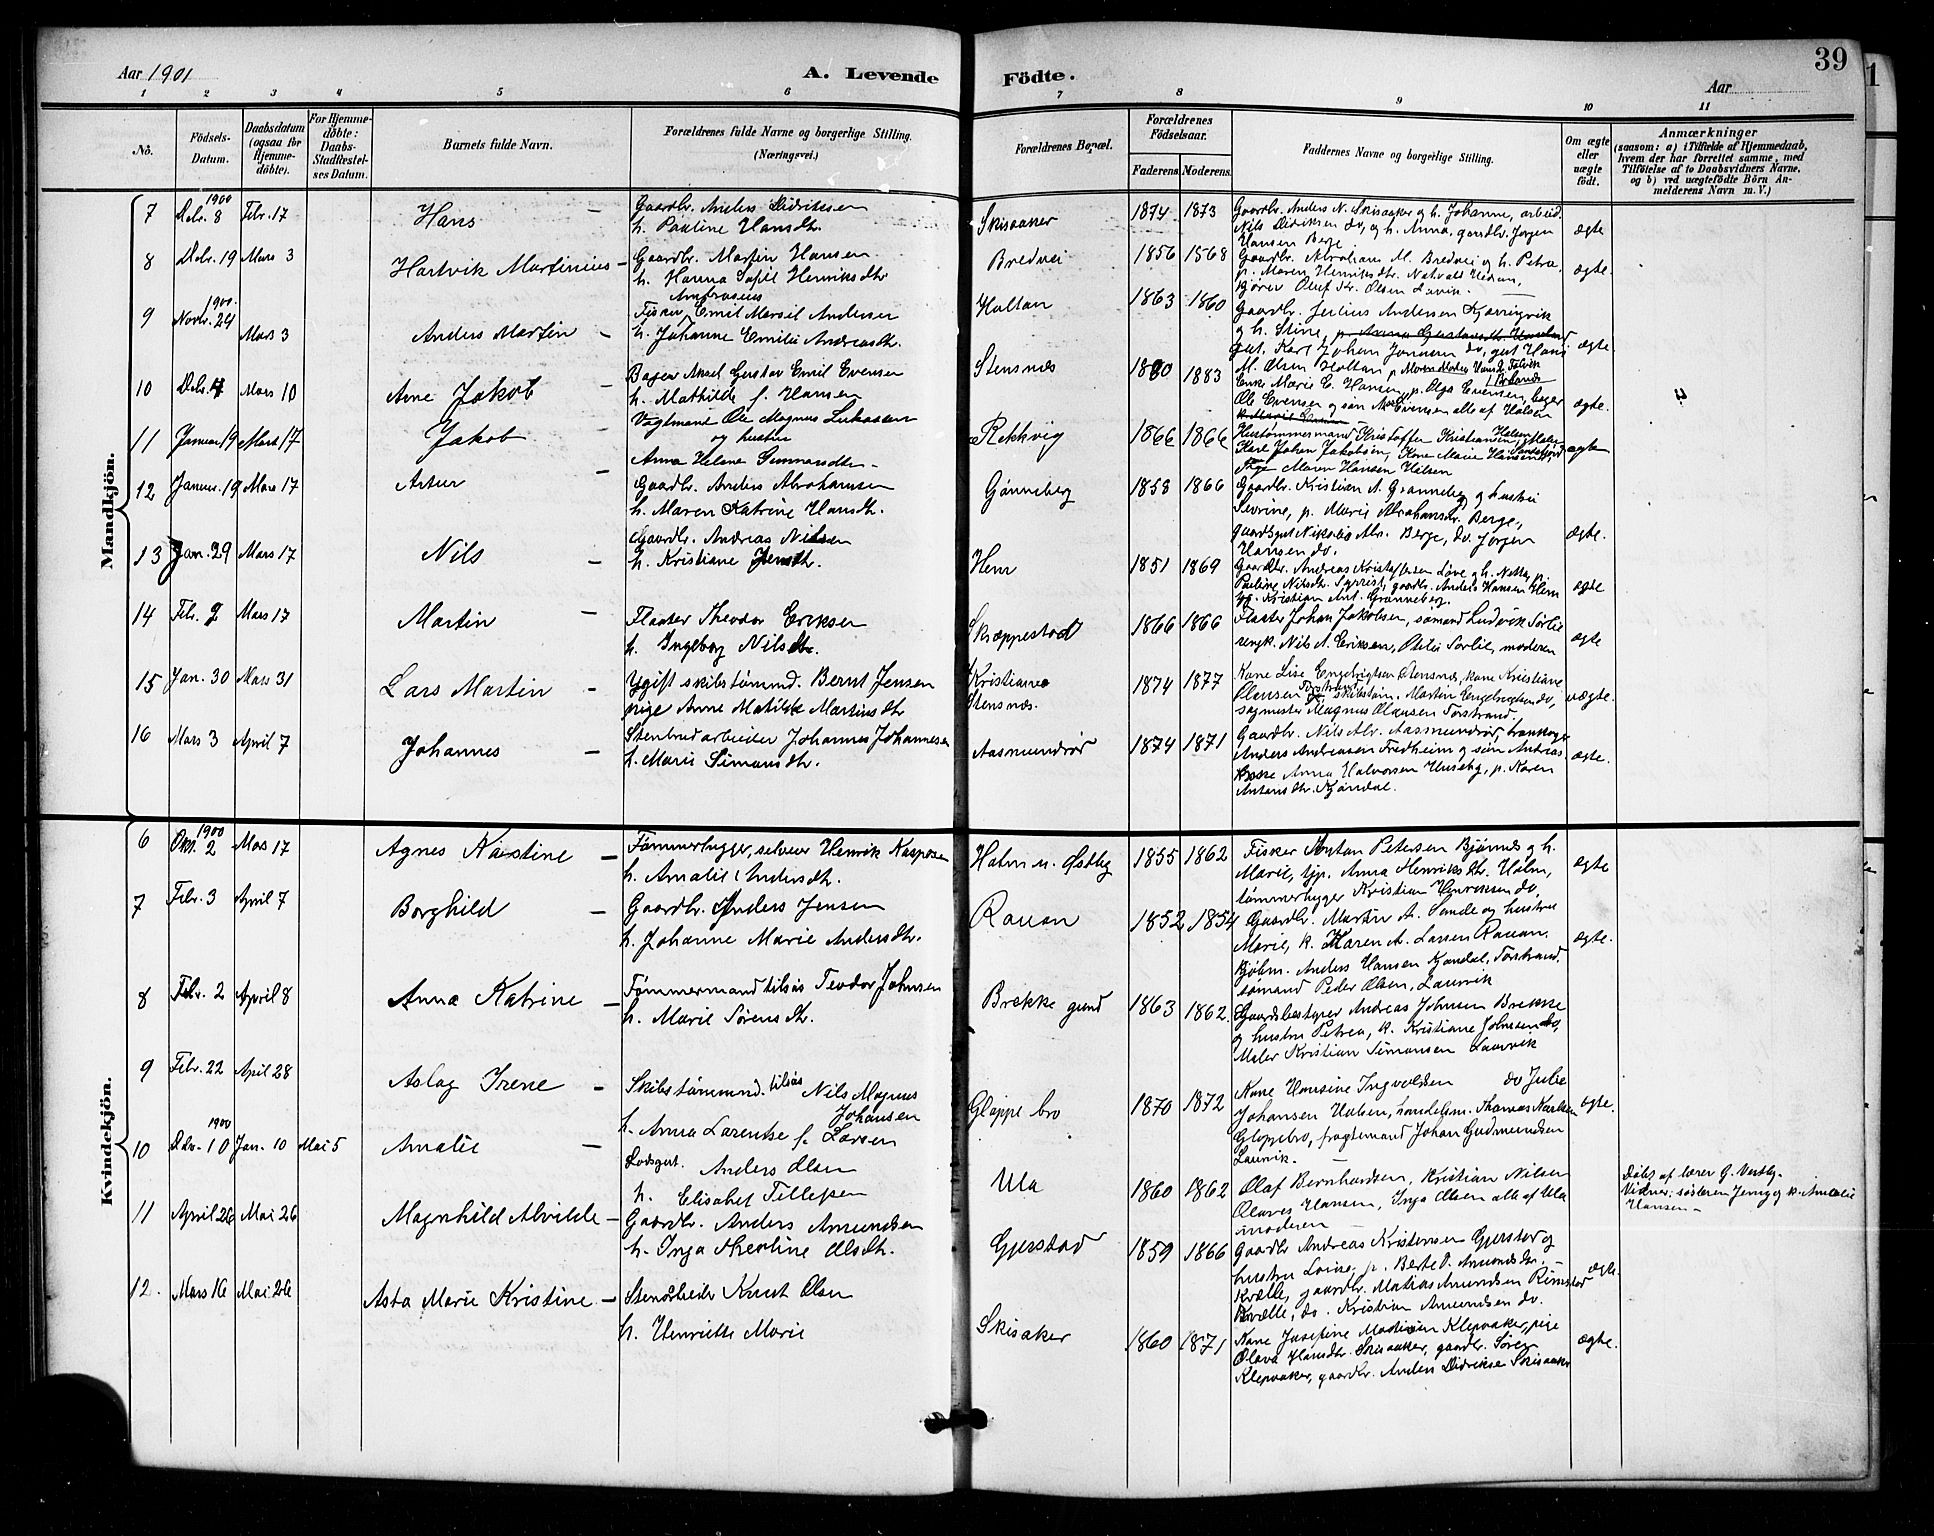 Aar 1901
A. Levende
Födte.
Aar
39
1 2 3 4 5 6 7 8 9 10 11
Nö.
Födsels-Datum.
Daabsdatum (ogsaa for Hjemme-döbte).
For Hjemme-döbte: Daabs-Stadfæstel-ses Datum.
Barnets fulde Navn.
Forældrenes fulde Navne og borgerlige Stilling.
(Næringsvei.)
Forældrenes Bopæl.
Forældrenes Födselsaar.
Faderens Moderens
Faddernes Navne og borgerlige Stilling.
Om ægte eller uægte födt.
Anmærkninger
(saasom: a) i Tilfælde af Hjemmedaab, hvem der har forrettet samme, med Tilföielse af to Daabsvidners Navne, og b) ved uægtefödte Börn An-melderens Navn m. V.)
Mandkjön.
7 1900 Febr. 17 Hans –
Gaardbr. Anders Didriksen
h. Pauline Hansdtr.
Skisaaker 1874 1873
Gaardbr. Anders N. Skisaaker og h. Johanne, arbeid.
Nils Didriksen do, og h. Anna, gaardbr. Jørgen
Hansen Berge
ægte
8 19 Mars 3 Hartvik Martinius –
Gaardbr. Martin Hansen
h. Hanna Sofie Henriksdtr
Bredvei 1856 1568
Gaardbr. Abraham M. Bredvei og h. Petra,
p. Maren Henriksdtr.
Olsen
ægte.
9 1900. Novbr. 24 Mars 3 Anders Martin –
Ambrosius
Fisker Emil Marsil Andersen
h. Johanne Emilie Andreasdtr.
Holtan 1863 1860
Gaardbr. Julius Andersen
og h. Stine,
gut. Karl Johan do, gut Hans
M. Olsen Holtan
ægte.
10 Mars 10 Arne Jakob –
Bager Aksel Gustav Emil Evensen
h. Mathilde f. Hansen
Stensnæs 1880 1883
Enke Marie C. Hansen, p. Olga Evensen, bager
Ole Evensen og søn Evensen alle af Halsen
ægte.
11 Januar 19 Mars 17 Jakob –
Vogtmand Ole Magnus Lukassen
og hustru
Anna Helene Gunnarsdtr –
Rekkvig 1866 1866
Hustømmermand Kristoffer Kristiansen Halsen, Maler
Karl Johan Jakobsen, Kone Marie Hansen
Pige Maren Hansen Halsen
ægte
12 Januar 19 Mars 17 Artur –
Gaardbr. Anders Abrahamsen
h. Maren Katrine Hansdtr.
Grønneberg 1858 1866
Gaardbr. Kristian A. Grønneberg og hustru
Severine, p. Marie Abrahamsdtr. Berge,
gaardsgut Nikolai Abr. Berge, do. Jørgen
Hansen do.
ægte.
13 Jan. 29 Mars 17 Nils –
Gaardbr. Andreas Nilsen
h. Kristiane Jensdtr.
Hem 1851 1869
Gaardbr. Andreas Kristoffersen Løve og h. Netta, p.
Pauline Nilsdtr. gaardbr. Anders Hansen Hem
Kristian Ant. Grønneberg.
ægte
14 Febr. 2 Mars 17 Martin –
Theodor Eriksen
h. Ingeborg Nilsdtr.
Skræppestad 1866 1866
Johan Jakobsen, sømand Ludvik Sørlie
ungk. Nils A. Eriksen, Otilie Sørlie, moderen
ægte
15 Jan. 30 Mars 31 Lars Martin –
Ugift skibstømmd. Bernt Jensen
pige Anne Matilde Martinsdtr
Kristiane
Stensnæs. 1874 1877
Kone Lise Engebrigtsen Stensnæs, kone Kristiane
Olausen Torstrand, skibstøm. Martin Engebregtsen do,
sagmester Magnus Olausen Torstrand,
uægte.
16 Mars 3 April 7 Johannes –
Stenbrudarbeider Johannes Johannesen
h. Marie Simonsdtr.
Aasmundrød 1874 1871
Gaardbr. Nils Abr. Aasmundrød,
Anders Andreassen Fredheim og søn Andreas
Anna Halvorsen Huseby, p. Karen
Antonsdtr. Kjøndal.
ægte.
Kvindekjön.
6 1900 Okt. 2 Mars 17 Agnes Kristine –
Tømmerhugger, selveier Henrik Kaspersen
h. Amalie Andersdtr.
Holm u. Østby 1855 1862
Fisker Anton Petersen Bjørnes og h.
Marie, tjp. Anna Henriksdtr. Holm,
tømmerhugger Kristian Henriksen do,
ægte
7 Febr. 3 April 7 Borghild –
Gaardbr. Anders Jensen
h. Johanne Marie Andersdtr.
Rauan 1852 1854
Gaardbr. Martin A. Sande og hustru
Marie, k. Karen A. Larsen Rauan.
Kjøbm. Anders Hansen Kjøndal, Torstrand,
sømand Peder Olsen, Laurvik
ægte.
8 Febr. 2 April 8 Anna Katrine –
Tømmermand tilsøs Teodor Johnsen
h. Marie Sørensdtr.
Brekke grund 1863 1862.
Gaardsbestyrer Andreas Johnsen Brekke
og hustru Petrea, k. Kristiane Johnsen do,
Maler Kristian Simonsen Laurvik
9 Febr. 22 April 28 Aslag Irene –
Skibstømmd. tilsøs Nils Magnus
Johansen
h. Anna Larentse f. Larsen
Gloppe bro 1870 1872
Kone Hansine Ingvaldsen do Julie
Johansen Halsen, handelsm. Thomas Karlsen
Gloppebro, fragtemand Johan Gudmundsen
Laurvik. –
ægte.
10 1900 10 Jan. 10 Mai 5 Amalie –
Lodsgut. Anders Olsen
h. Elisabet Tellefsen
Ula 1860 1862
Olaf Bernhardsen, Kristian Nilsen
Olaves Hansen, Inga Olsen alle af Ula
moderen –
Døbt af lærer G. Vestby.
Vidner: søsteren Jenny og k. Amalie
Hansen –
11 April 26 Mai 26 Magnhild Alvilde –
Gaardbr. Anders Amundsen
h. Inga Theoline Olsdtr.
Gjerstad 1859 1866
Gaardbr Andreas Kristensen Gjerstad og
hustru Lovise, p. Berte D. Amundsdtr. –
Kvælle, gaardbr. Matias Amundsen Rimstad
Kvælle, do. Kristian Amundsen do.
ægte.
12. Mars 16 Mai 26 Asta Marie Kristine –
Stenarbeider Knut Olsen
h. Henriette Marie
Skisaker 1860 1871
Kone Josefine Madsen Klepaaker, pige
Olava Hansdtr. Skisaaker, gaardbr. Søren
Klepaaker, gaardbr. Anders Didriksen Skisaaker
ægte.